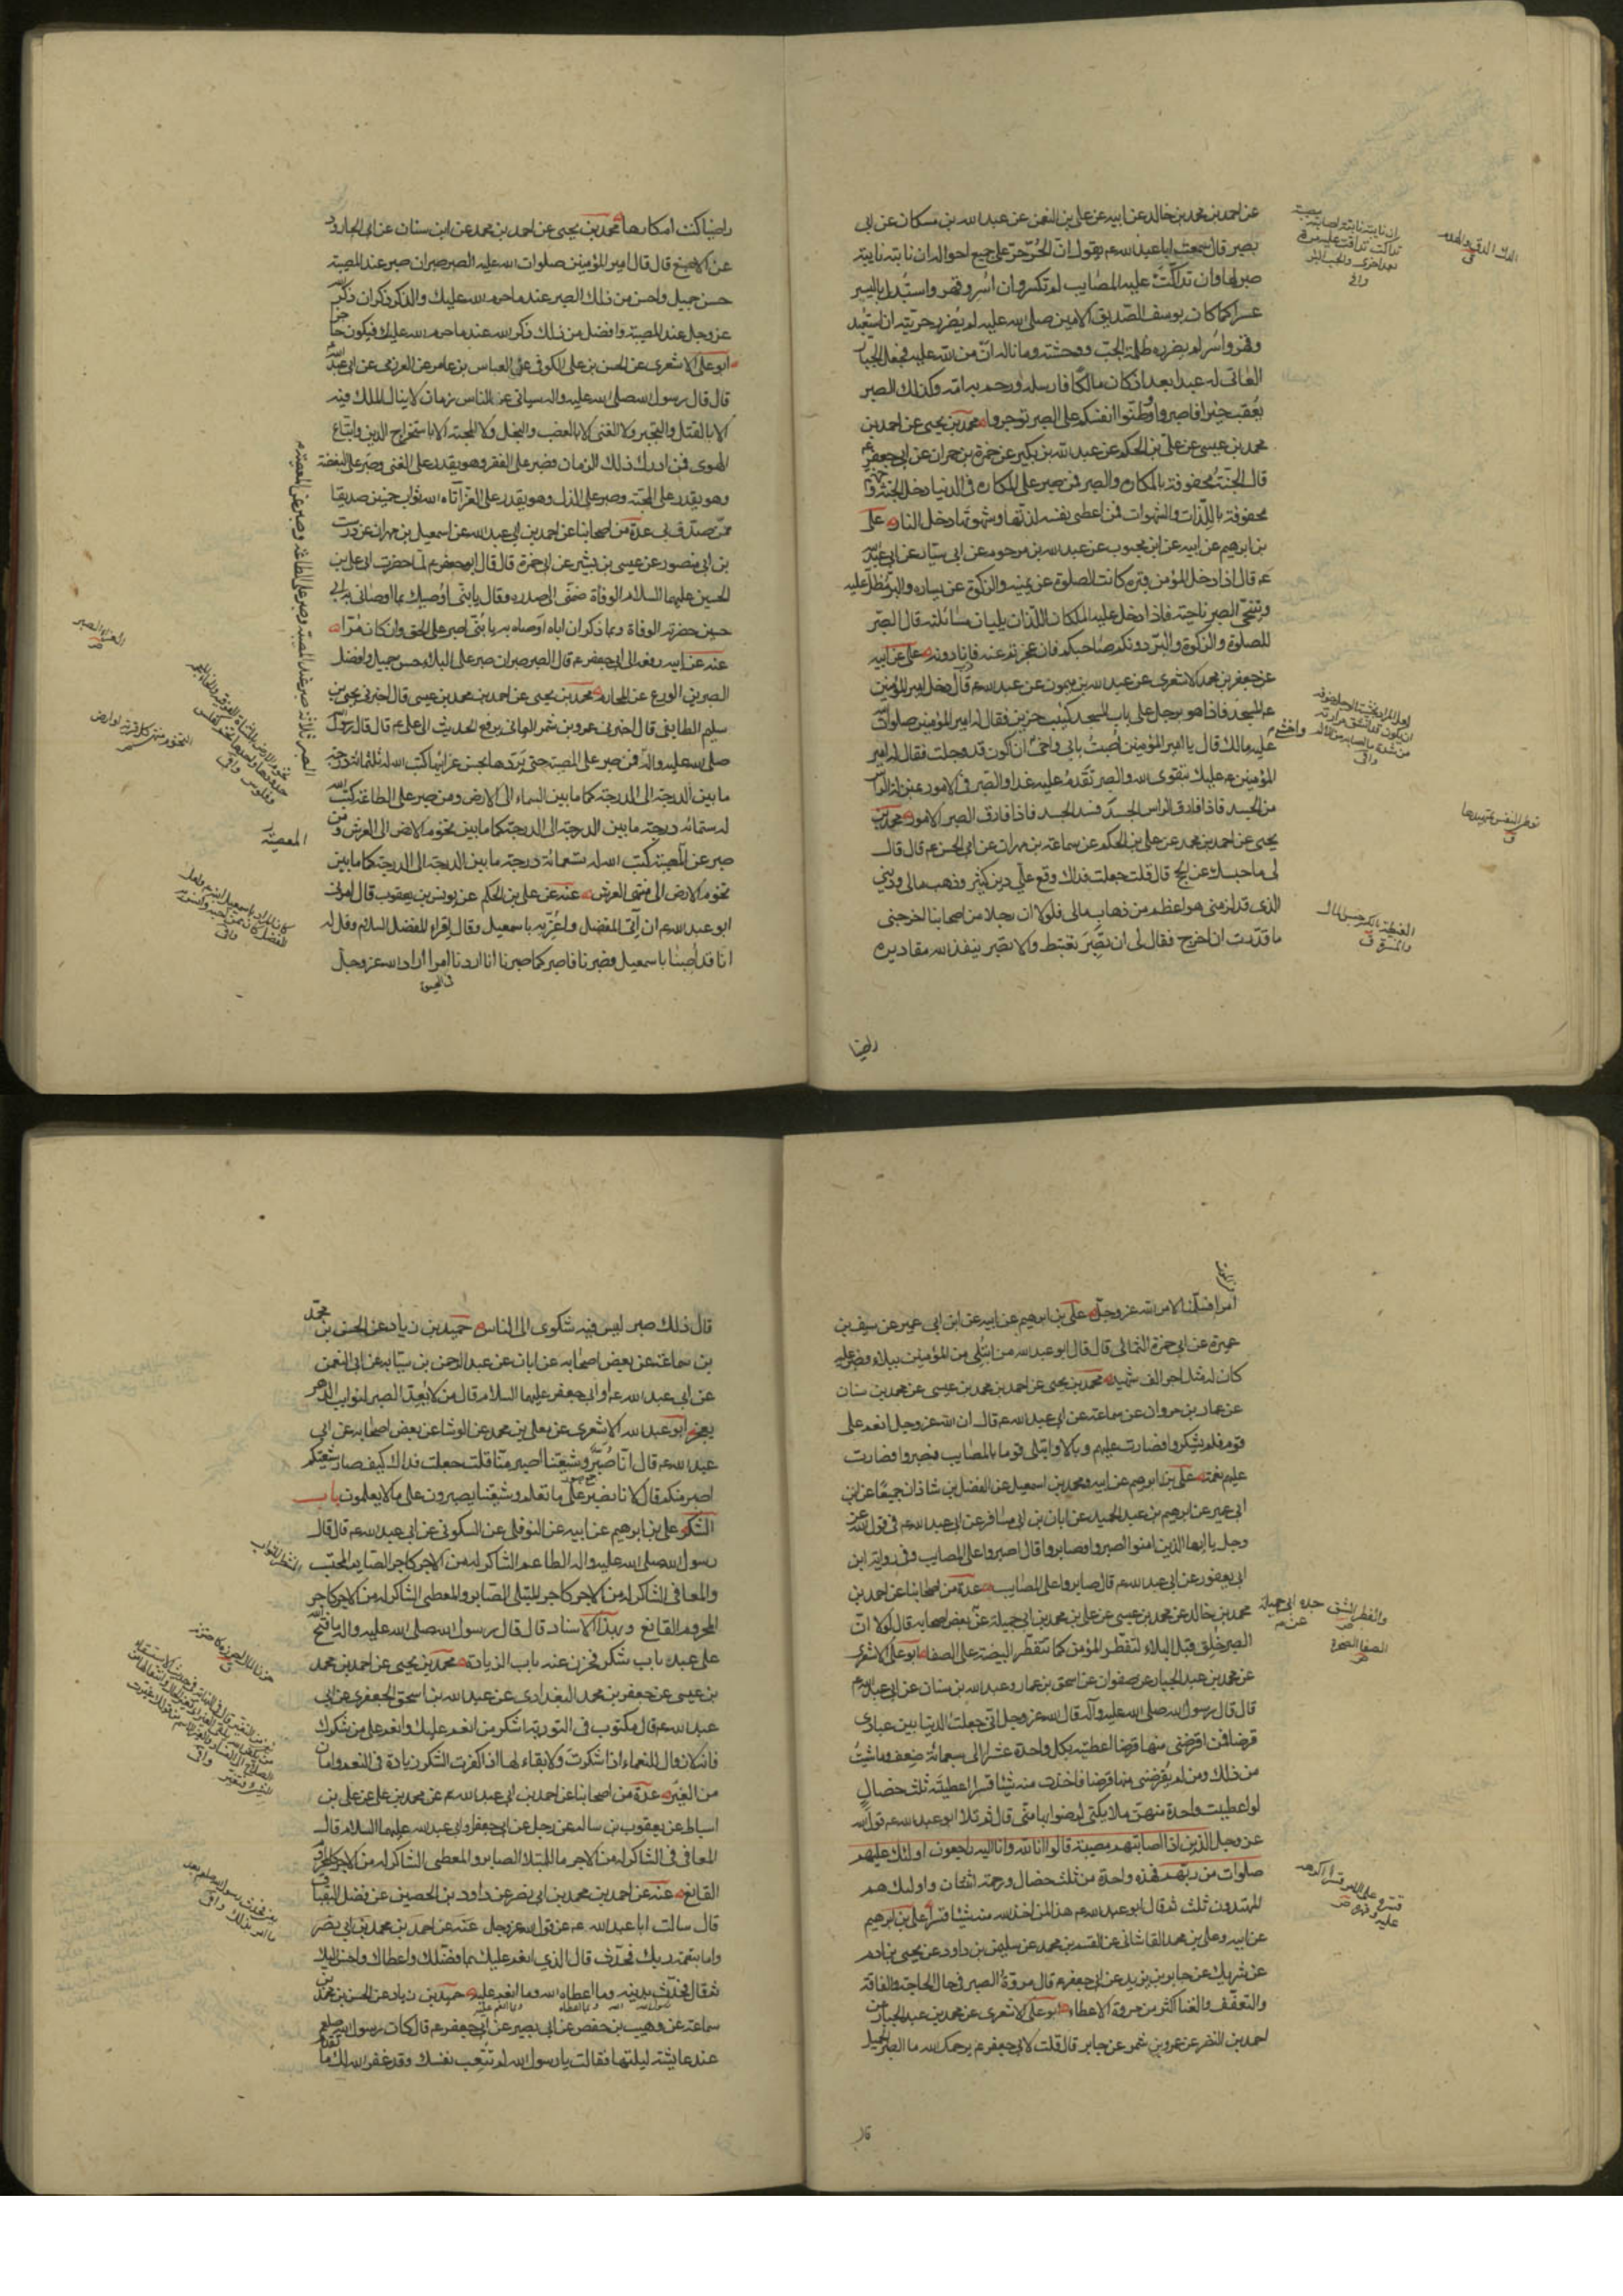 عن احمد بن محمد بن خالد عن ابيه عن علي بن النعمن عن عبد الله بن مسكان عن ابي
بصير قال سمعت ابا عبد الله ع م يقول انّ الحُرّ حرّ على جميع احواله ان نابته نايبة
صبر لها وان تداكّت عليه المصايب لم تكسره وان أُسر وقهر واستُبدل باليسر
عسرا كما كان يوسف الصّديق الامين صلى الله عليه لم يُضرر حريّته ان استُعبد
وقهر واُسر لم يضرره ظلمة الجبّ ووحشته وما ناله ان منّ الله عليه فجعل الجبار
العاتى له عبدا بعد اذ كان مالكا فارسله ورحم به امّة وكذلك الصبر
يُعقب خيرا فاصبروا ووطّنوا انفسكم على الصبر توجروا محمد بن يحيى عن احمد بن
محمد بن عيسى عن علي بن الحكم عن عبد الله بن بكير عن حمزة بن حمران عن ابي جعفر ع م
قال الجنّة محفوفة بالمكاره والصبر فمن صبر على المكاره في الدنيا دخل الجنّة وجهنم
محفوفة باللّذات والشهوات فمن اعطى نفسه لذتها وشهوتها دخل النار علي
بن ابرهيم عن ابيه عن ابن محبوب عن عبد الله بن مرحوم عن ابي سيّار عن ابي عبد الله
ع م قال اذا دخل المؤمن قبره كانت الصلوة عن يمينه والزكوة عن يساره والبرّ مُطلّ عليه
ويتنحّى الصبر ناحية فاذا دخل عليه الملكان اللّذان يليان مسائلته قال الصبر
للصلوة والزكوة والبرّ دونكم صاحبكم فان عجزتم عنه فانا دونه علي عن ابيه
عن جعفر بن محمد الاشعري عن عبد الله بن ميمون عن عبد الله ع م قال دخل امير المؤمنين
ع م المسجد فاذا هو برجل على باب المسجد كئيب حزين فقال له امير المؤمنين صلوات الله
عليه مالك قال يا امير المؤمنين اُصبتُ بابي واخي واخشى ان اكون قد وجلت فقال له امير
المؤمنين ع م عليك بتقوى الله والصبر تَقدَمُ عليه غدا والصبر في الامور بمنزلة الراس
من الجسد فاذا فارق الراس الجسد فسد الجسد فاذا فارق الصبر الامور محمد بن
يحيى عن احمد بن محمد عن علي بن الحكم عن سماعة بن مهران عن ابي الحسن ع م قال قال
لي ما حبسك عن الحج قال قلت جعلت فداك وقع علَي دين كثير وذهب مالي وديني
الذي قد لزمني هو اعظم من ذهاب مالي فلولا ان رجلا من اصحابنا اخرجني
ما قدرت ان اخرج فقال لي ان تصبِر تغتبط والا تصبر ينفذ الله مقاديره
راضيا
راضيا كنت ام كارها محمد بن يحيى عن احمد بن محمد عن ابن سنان عن ابي الجارود
عن الاصبغ قال قال امير المؤمنين صلوات الله عليه الصبر صبران صبر عند المصيبة
حسن جميل واحسن من ذلك الصبر عند ما حرم الله عليك والذكر ذكران ذكر الله
عز وجل عند المصيبة وافضل من ذلك ذكر الله عند ما حرم الله عليك فيكون حاجزا
ابو علي الاشعري عن الحسن بن علي الكوفي عن العباس بن عامر عن العرزمي عن ابي عبد الله
قال قال رسول الله صلى الله عليه واله سياتي على الناس زمان لا ينال الملك فيه
الا بالقتل والتجبر ولا الغنى الا بالغصب والبخل ولا المحبة الا باستخراج الدين واتباع
الهوى فمن ادرك ذلك الزمان فصبر على الفقر وهو يقدر على الغنى وصبر على البغضة
وهو يقدر على المحبّة وصبر على الذل وهو يقدر على العزّ اتاه الله ثواب خمسين صديقا
ممّن صدّق بي عدة من اصحابنا عن احمد بن ابي عبد الله عن اسمعيل بن مهران عن درست
بن ابي منصور عن عيسى بن بشير عن ابي حمزة قال قال ابو جعفر ع م لمّا حضرت ابي علي بن
الحسين عليهما السلام الوفاة ضمّني الى صدره وقال يا بنيّ اوصيك بما اوصاني به ابي
حين حضرته الوفاة وبما ذكر ان اباه اوصاه به يا بُنيّ اصبر على الحق وان كان مُرّا
عنه عن ابيه رفعه الى ابي جعفر ع م قال الصبر صبران صبر على البلاء حسن جميل وافضل
الصبرين الورع عن المحارم محمد بن يحيى عن احمد بن محمد بن عيسى قال اخبرني يحيى بن
سليم الطائفي قال اخبرني عمرو بن شمر اليماني يرفع الحديث الى علي ع م قال قال رسول الله
صلى الله عليه واله الصبر ثلاثة صبر عند المصيبة وصبر على الطاعة وصبر عن المعصية فمن صبر على المصيبة حتى يردّها بحسن عزائها كتب الله له ثلثمائة درجة
ما بين الدرجة الى الدرجة كما بين السماء الى الارض ومن صبر على الطاعة كتب الله
له ستمائة درجة ما بين الدرجة الى الدرجة كما بين تخوم الارض الى العرش ومن
صبر عن المعصية كتب الله له تسعمائة درجة ما بين الدرجة الى الدرجة كما بين
تخوم الارض الى منتهى العرش عنه عن علي بن الحكم عن يونس بن يعقوب قال امرني
ابو عبد الله ع م ان آتي المفضل واعزّيه باسمعيل وقال اقرء المفضل السلام وقل له
انا قد اُصبنا باسمعيل فصبرنا فاصبر كما صبرنا انا اردنا امرا واراد الله عز وجل
امرا فسلّمنا لامر الله عز وجل علي بن ابرهيم عن ابيه عن ابن ابي عمير عن سيف بن
عميرة عن ابي حمزة الثمالي قال قال ابو عبد الله من ابتُلي من المؤمنين ببلاء فصبر عليه
كان له مثل اجر الف شهيد محمد بن يحيى عن احمد بن محمد بن عيسى عن محمد بن سنان
عن عمار بن مروان عن سماعة عن ابي عبد الله ع م قال ان الله عز وجل انعم على
قوم فلم يشكروا فصارت عليهم وبالا وابتلى قوما بالمصايب فصبروا فصارت
عليهم نعمة علي بن ابرهيم عن ابيه ومحمد بن اسمعيل عن الفضل بن شاذان جميعًا عن ابن
ابي عمير عن ابرهيم بن عبد الحميد عن ابان بن ابي مسافر عن ابي عبد الله ع م في قول الله عز
وجل يا ايها الذين امنوا اصبروا وصابروا قال اصبروا على المصايب وفي رواية ابن
ابي يعفور عن ابي عبد الله ع م قال صابروا على المصايب عدة من اصحابنا عن احمد بن
محمد بن خالد عن محمد بن عيسى عن علي بن محمد بن ابي جميلة عن جده ابي جميلة عن بعض اصحابه قال لولا انّ
الصبر خُلِق قبل البلاء لتفطّر المؤمن كما تتفطّر البيضة على الصفا ابو علي الاشعري
عن محمد بن عبد الجبار عن صفوان عن اسحق بن عمار وعبد الله بن سنان عن ابي عبد الله ع م
قال قال رسول الله صلى الله عليه وآله قال الله عز وجل اني جعلت الدنيا بين عبادي
قرضا فمن اقرضني منها قرضا اعطيته بكل واحدة عشرا الى سبعمائة ضِعف وما شئتُ
من ذلك ومن لم يُقرضني منها قرضا فاخذت منه شيئا قسرا اعطيتُه ثلث خصال
لو اعطيت واحدة منهن ملائكتي لرضوا بها منّي قال ثم تلا ابو عبد الله ع م قول الله
عز وجل الذين اذا اصابتهم مصيبة قالوا انا لله وانا اليه راجعون اولئك عليهم
صلوات من ربهم فهذه واحدة من ثلث خصال ورحمة اثنتان واولئك هم
المهتدون ثلث ثم قال ابو عبد الله ع م هذا لمن اخذ الله منه شيئا قسرا علي بن ابرهيم
عن ابيه وعلي بن محمد القاشاني عن القسم بن محمد عن سليمن بن داود عن يحيى بن ادم
عن شريك عن جابر بن يزيد عن ابي جعفر ع م قال مروّةُ الصبر في حال الحاجة والفاقة
والتعفّف والغنا اكثر من مروة الاعطاء ابو علي الاشعري عن محمد بن عبد الجبار عن
احمد بن النضر عن عمرو بن شمر عن جابر قال قلت لابي جعفر ع م يرحمك الله ما الصبر الجميل
قال
قال ذلك صبر ليس فيه شكوى الى الناس حميد بن زياد عن الحسن بن محمد
بن سماعة عن بعض اصحابه عن ابان عن عبد الرحمن بن سيّابه عن ابي النعمن
عن ابي عبد الله ع م او ابي جعفر عليهما السلام قال من لا يُعِدّ الصبر لنوايب الدهر
يعجز ابو عبد الله الاشعري عن معلى بن محمد عن الوشا عن بعض اصحابه عن ابي
عبد الله ع م قال انّا صُبّر وشيعتنا اصبر منّا قلت جعلت فداك كيف صار شيعتكم
اصبر منكم قال لانا نصبر على ما نعلم وشيعتنا يصبرون على ما لا يعلمون باب
الشكر علي بن ابرهيم عن ابيه عن النوفلي عن السكوني عن ابي عبد الله ع م قال قال
رسول الله صلى الله عليه واله الطاعم الشاكر له من الاجر كاجر الصايم المحتسب
والمعافى الشاكر له من الاجر كاجر المبتلى الصابر والمعطى الشاكر له من الاجر كاجر
المحروم القانع وبهذا الاسناد قال قال رسول الله صلى الله عليه واله ما فتح الله
على عبد باب شكر فخزن عنه باب الزيادة محمد بن يحيى عن احمد بن محمد
بن عيسى عن جعفر بن محمد البغدادي عن عبد الله بن اسحق الجعفري عن ابي
عبد الله ع م قال مكتوب في التورية اشكر من انعم عليك وانعم على من شكرك
فانه لا زوال للنعماء اذا شكرت ولا بقاء لها اذا كفرت الشكر زيادة في النعم وامان
من الغِيَر عدة من اصحابنا عن احمد بن ابي عبد الله ع م عن محمد بن علي عن علي بن
اسباط عن يعقوب بن سالم عن رجل عن ابي جعفر او ابي عبد الله عليهما السلام قال
المعافى في الشاكر له من الاجر ما للمبتلا الصابر والمعطى الشاكر له من الاجر كالمحروم
القانع عنه عن احمد بن محمد بن ابي نصر عن داود بن الحصين عن فضل البقباق
قال سالت ابا عبد الله ع م عن قول الله عز وجل عنه عن احمد بن محمد بن ابي نصر
واما بنعمة ربك فحدّث قال الذي انعم عليك بما فضّلك واعطاك واحسن اليك
ثم قال فحدّث بدينه وما اعطاه الله وما انعم عليه حميد بن زياد عن الحسن بن محمد بن
سماعة عن وهيب بن حفص عن ابي بصير عن ابي جعفر ع م قال كان رسول الله صلعم
عند عايشة ليلتها فقالت يا رسول الله لم تُتعِب نفسك وقد غفر الله لك ما تقدم